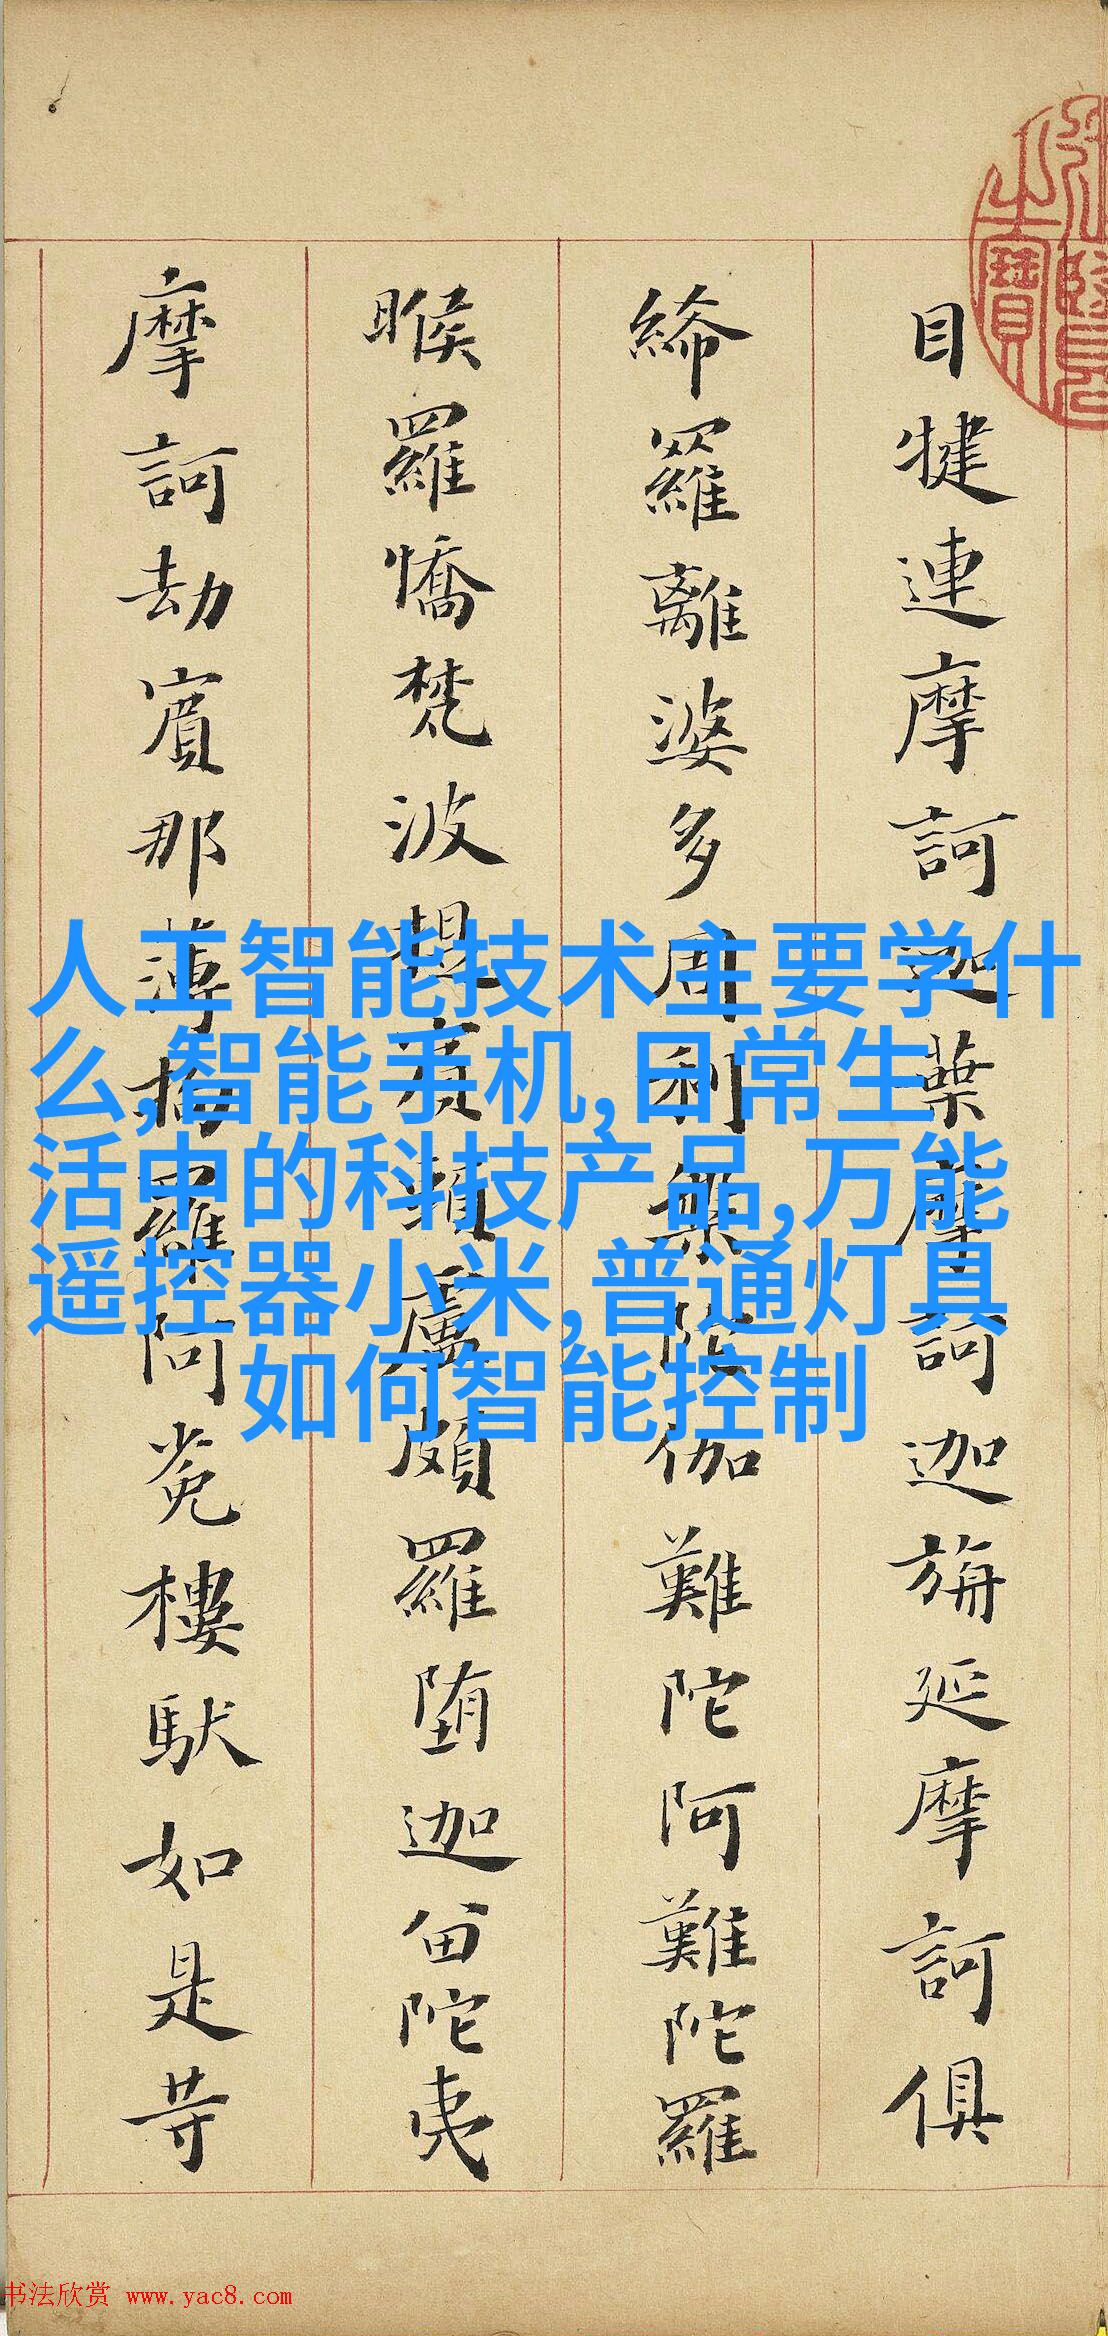 目犍連摩訶迦葉摩訶迦旃延摩訶俱
絺羅離婆多周利槃陀伽難陀阿難陀羅
睺羅憍梵波提賓頭盧頗羅堕迦留陀夷
摩訶劫賓那薄拘羅阿㝹樓馱如是等
人工智能技术主要学什
么,智能手机,日常生
活中的科技产品,万能
遥控器小米,普通灯具
如何智能控制
书法欣赏 www.yac8.com